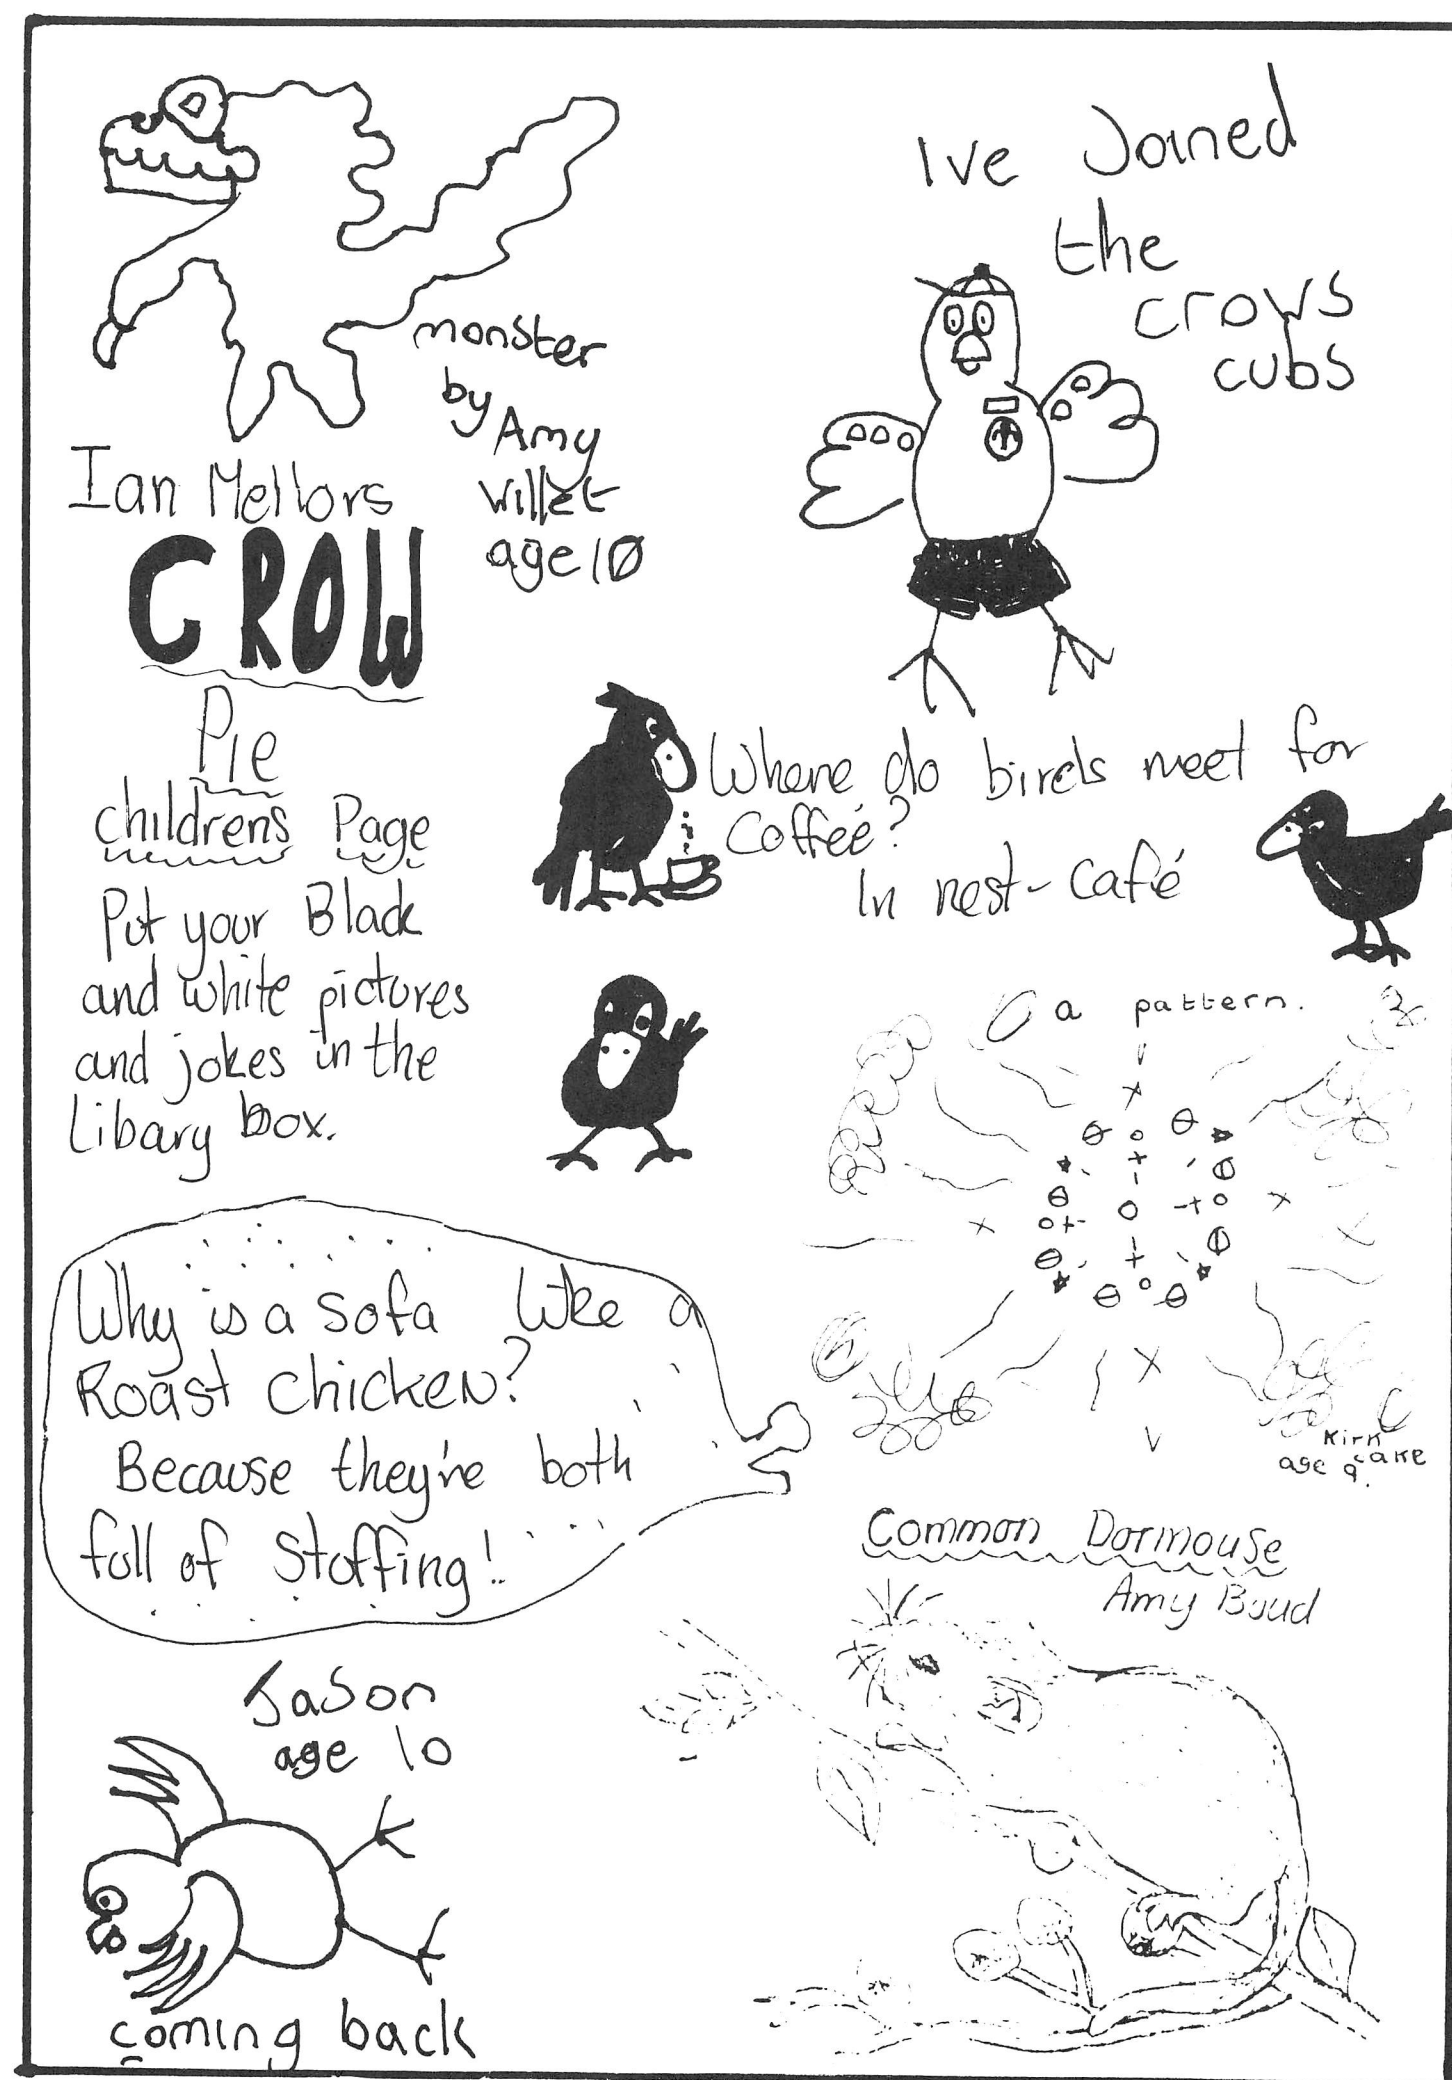 monster
by
Amy
Willet
age 10
Ive Joined
the
crows
cubs
Ian Mellors
CROW
Pie
childrens Page
Put your Black
and white pictures
and jokes in the
Libary box.
Where do birds meet for
Coffeé?
In nest-Café
a pattern.
Kirk
cake
age 9.
Why is a Sofa like a
Roast chicken?
Because they're both
full of Stuffing!
Common Dormouse
Amy Budd
Jason
age 10
coming back